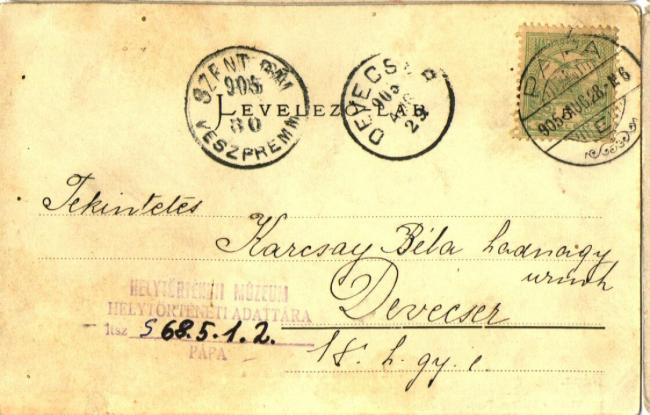 SZENT GÁL
905
30
VESZPRÉMM
DEVECSER
905
AUG
29
PÁPA
905 AUG 28
LEVELEZŐ-LAP
Tekintetes
Karcsay Béla hadnagy
urnak
Devecser
18. h. gy. e.
HELYTÖRTÉNETI MÚZEUM
HELYTÖRTÉNETI ADATTÁRA
ltsz S 68.5.1.2.
PÁPA